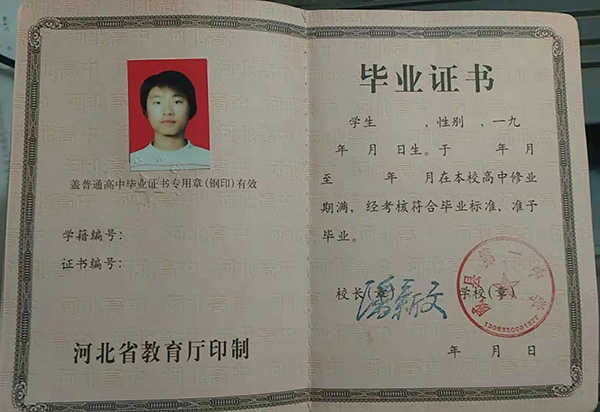 盖普通高中毕业证书专用章(钢印)有效
学籍编号：
证书编号：
河北省教育厅印制
毕业证书
学生 ，性别 ，一九
年 月 日生。于 年 月
至 年 月在本校高中修业
期满，经考核符合毕业标准，准予
毕业。
校长(章)
学校(章)
年 月 日